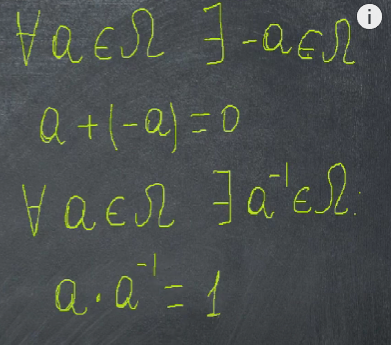 ∀ a ∈ Ω ∃ -a ∈ Ω
a + (-a) = 0
∀ a ∈ Ω ∃ a⁻¹ ∈ Ω:
a · a⁻¹ = 1